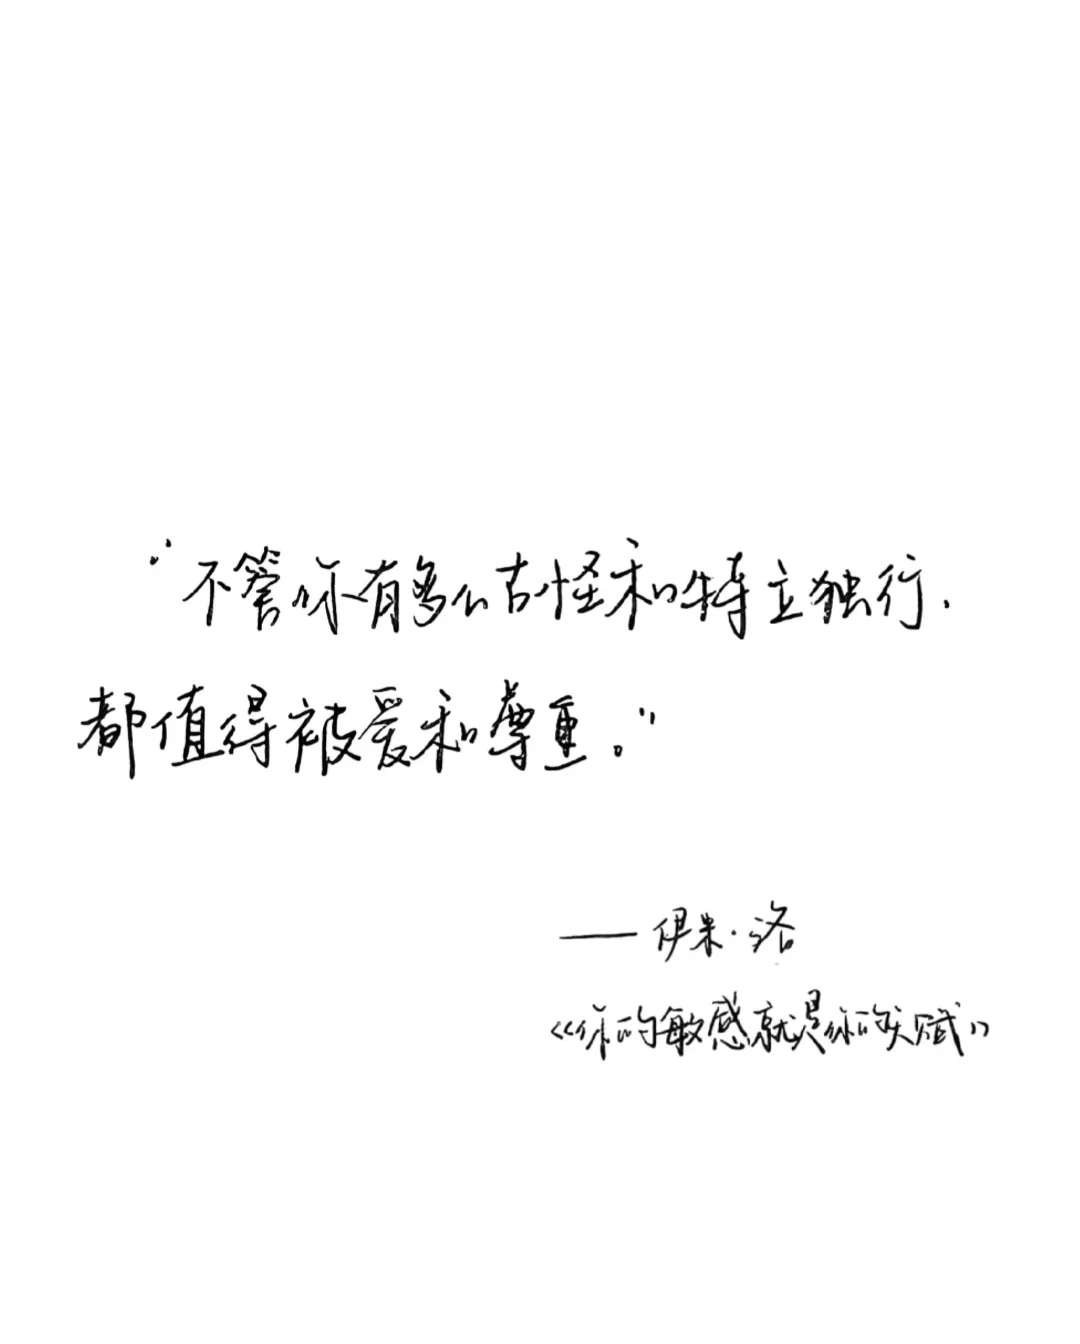 “不管你有多么古怪和特立独行，
都值得被爱和尊重。”
——伊米·洛
《你的敏感就是你的天赋》